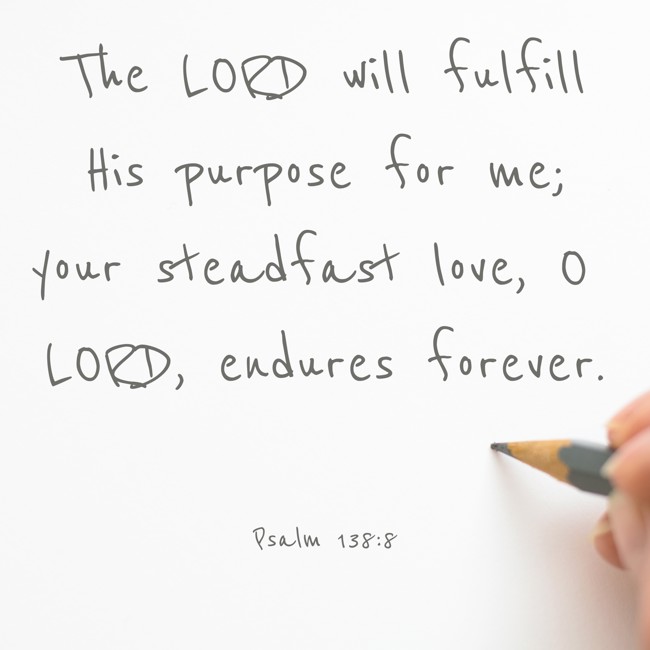 The LORD will fulfill
His purpose for me;
your steadfast love, O
LORD, endures forever.
Psalm 138:8